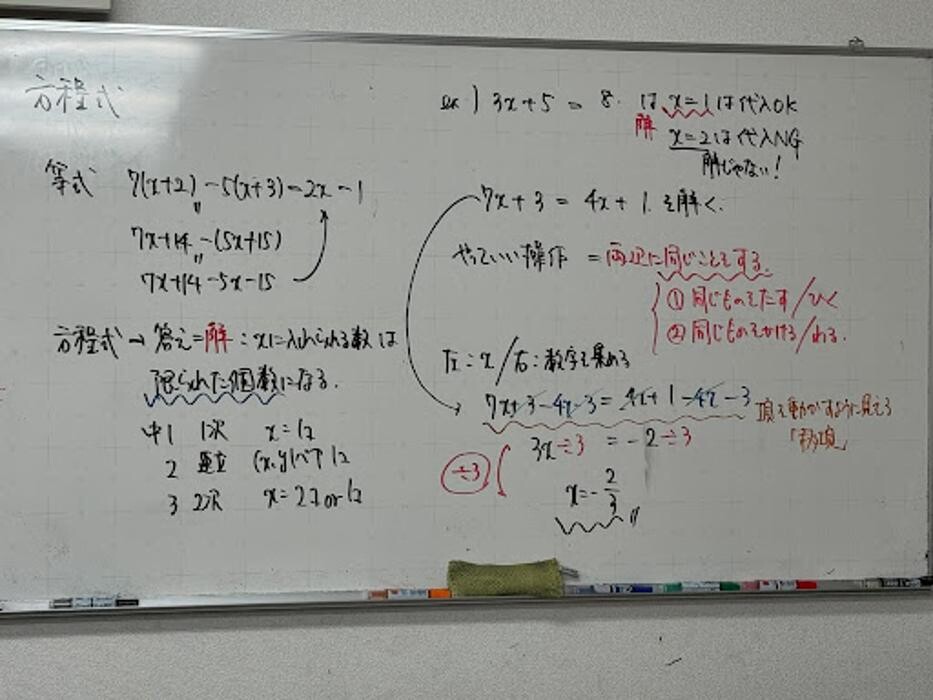 方程式
等式 7(x+2)-5(x+3)=2x-1
〃
7x+14-(5x+15)
〃
7x+14-5x-15
方程式→答え=解:xに入れられる数は
限られた個数になる.
中1 1次 x=1コ
2 連立 (x,y)ペア1コ
3 2次 x=2コor1コ
ex) 3x+5=8. は x=1は代入OK
解
x=2は代入NG
解じゃない!
7x+3=4x+1.を解く.
やっていい操作 =両辺に同じことをする.
①同じものをたす/ひく
②同じものをかける/わる.
左:x/右:数字を集める
7x+3-4x-3=4x+1-4x-3
項を動かすように見える
「移項」
÷3
3x÷3=-2÷3
x=-2/3